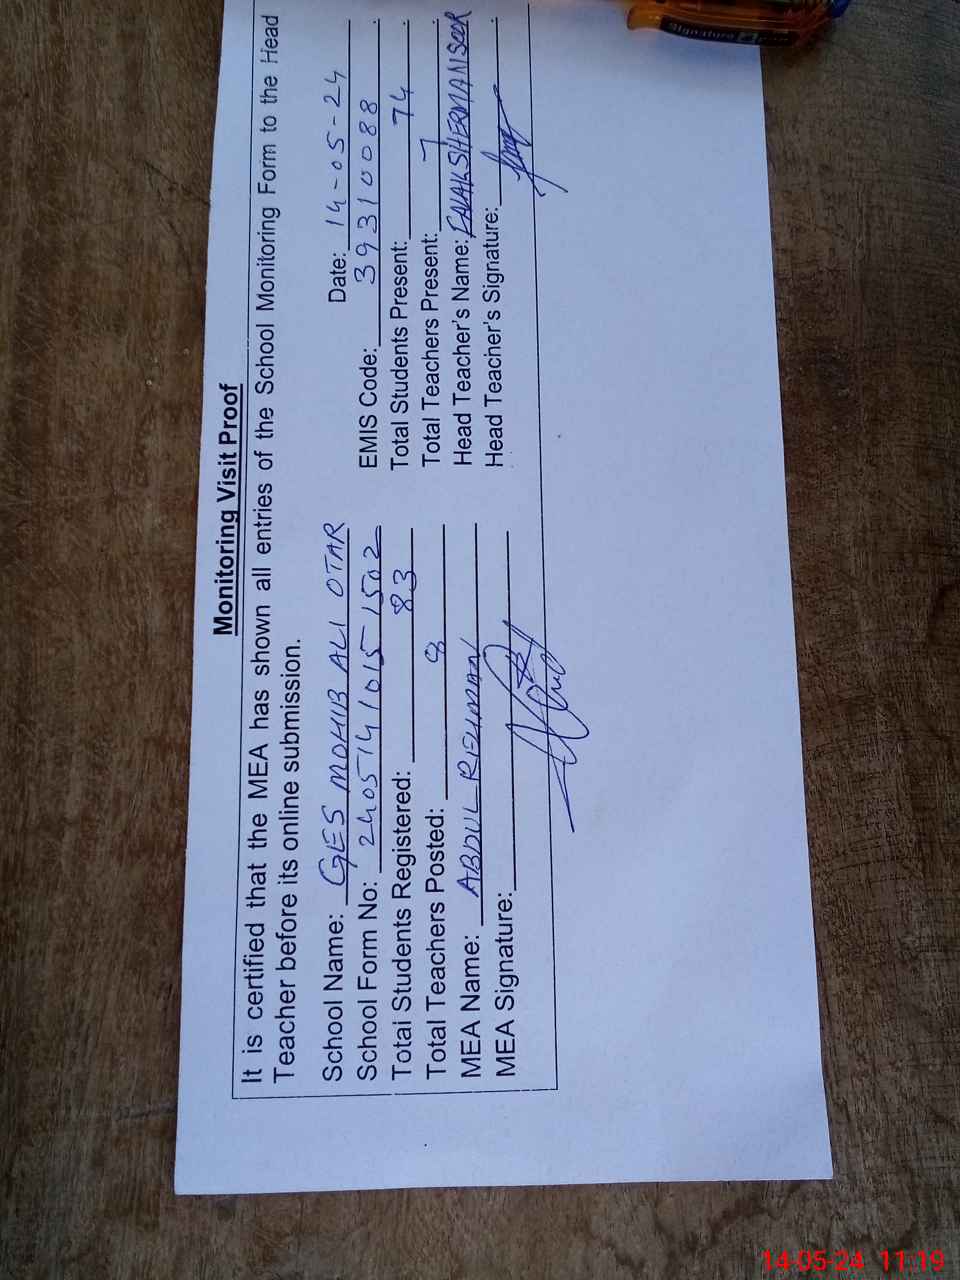 Monitoring Visit Proof
It is certified that the MEA has shown all entries of the School Monitoring Form to the Head
Teacher before its online submission.
Date: 14-05-24
School Name: GES MOHIB ALI OTAR
EMIS Code: 39310088
School Form No: 24051410151502
Total Students Present: 74
Total Students Registered: 83
Total Teachers Present: 7
Total Teachers Posted: 8
Head Teacher's Name:
MEA Name: ABDUL REHMAN
Head Teacher's Signature:
MEA Signature:
Signature
14-05-24 11:19